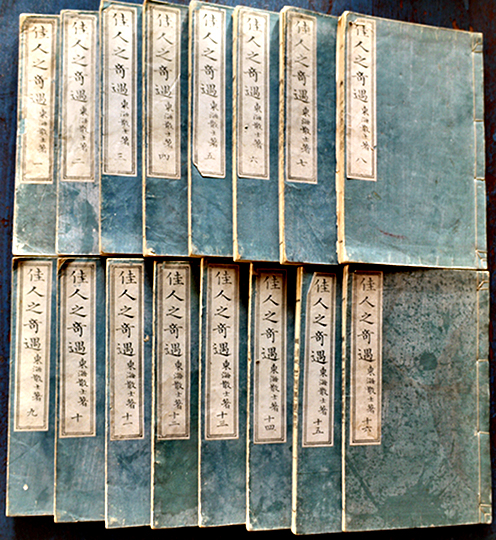 佳人之奇遇 東海散士著 一
佳人之奇遇 東海散士著 二
佳人之奇遇 東海散士著 三
佳人之奇遇 東海散士著 四
佳人之奇遇 東海散士著 五
佳人之奇遇 東海散士著 六
佳人之奇遇 東海散士著 七
佳人之奇遇 東海散士著 八
佳人之奇遇 東海散士著 九
佳人之奇遇 東海散士著 十
佳人之奇遇 東海散士著 十一
佳人之奇遇 東海散士著 十二
佳人之奇遇 東海散士著 十三
佳人之奇遇 東海散士著 十四
佳人之奇遇 東海散士著 十五
佳人之奇遇 東海散士著 十六